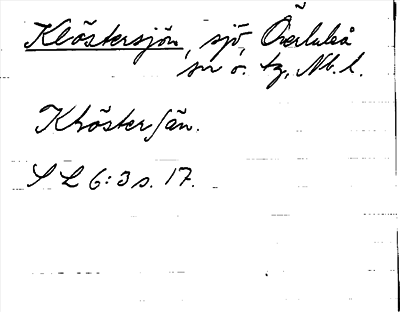 Klöstersjön, sjö, Överluleå
sn o. tg, Nb. l.
Klöster sån.
S L 6:3 s. 17.